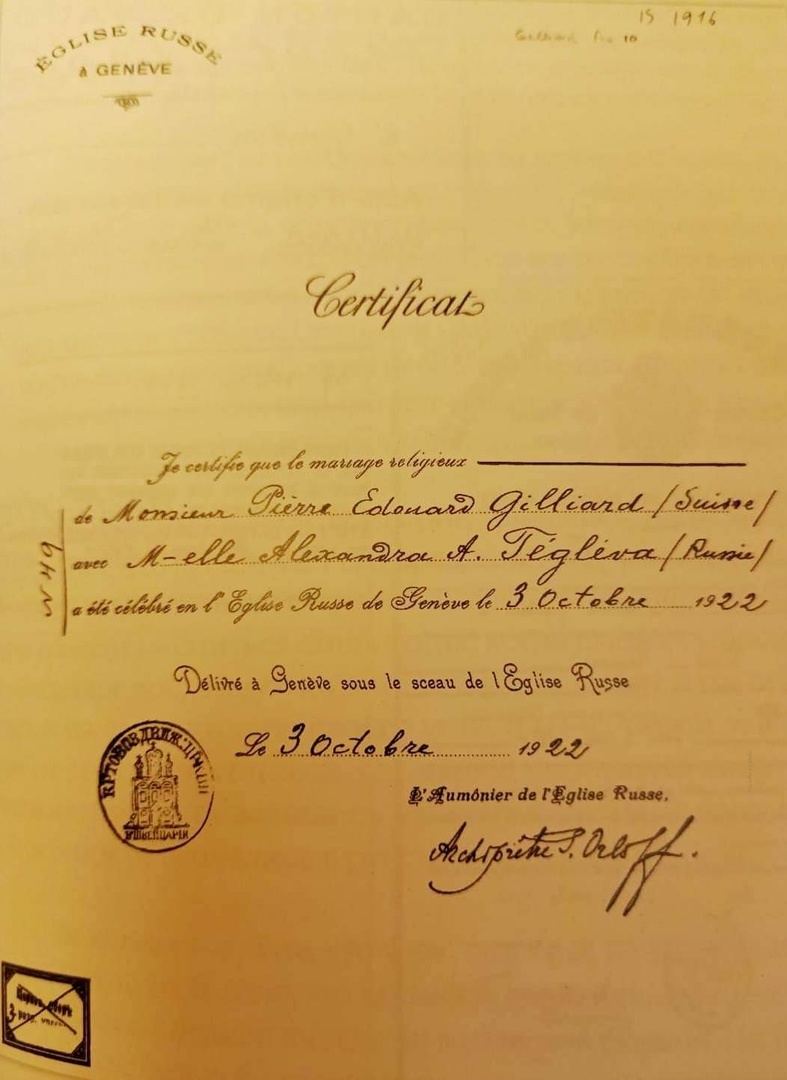 IS 1916
10
ÉGLISE RUSSE
à GENÈVE
Certificat
Je certifie que le mariage religieux
de Monsieur Pièrre Edouard Gilliard /Suisse/
avec M-elle Alexandra A. Tégléva /Russie/
a été célébré en l'Eglise Russe de Genève le 3 Octobre 1922
Délivré à Genève sous le sceau de l'Eglise Russe
Le 3 Octobre 1922
L'Aumônier de l'Eglise Russe,
Archiprêtre S. Orloff.
КРТОВОЗДВИЖ. ЦРКВИ
В ШВЕЙЦАРІИ
3